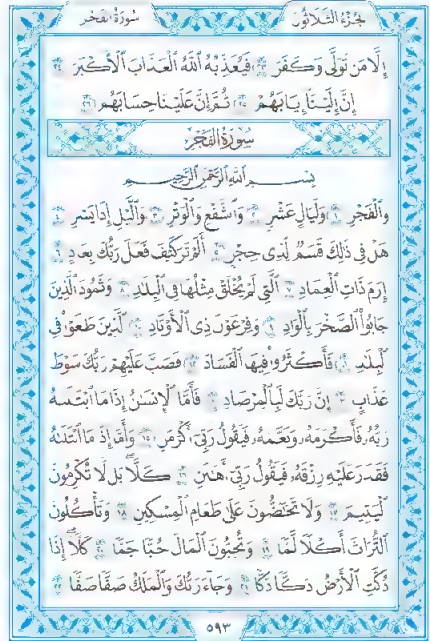 الجزء الثلاثون سورة الفجر
إِلَّا مَن تَوَلَّىٰ وَكَفَرَ ٢٣ فَيُعَذِّبُهُ ٱللَّهُ ٱلْعَذَابَ ٱلْأَكْبَرَ ٢٤
إِنَّ إِلَيْنَآ إِيَابَهُمْ ٢٥ ثُمَّ إِنَّ عَلَيْنَا حِسَابَهُم ٢٦
سورة الفجر
بِسْمِ ٱللَّهِ ٱلرَّحْمَٰنِ ٱلرَّحِيمِ
وَٱلْفَجْرِ ١ وَلَيَالٍ عَشْرٍ ٢ وَٱلشَّفْعِ وَٱلْوَتْرِ ٣ وَٱلَّيْلِ إِذَا يَسْرِ ٤
هَلْ فِى ذَٰلِكَ قَسَمٌ لِّذِى حِجْرٍ ٥ أَلَمْ تَرَ كَيْفَ فَعَلَ رَبُّكَ بِعَادٍ ٦
إِرَمَ ذَاتِ ٱلْعِمَادِ ٧ ٱلَّتِى لَمْ يُخْلَقْ مِثْلُهَا فِى ٱلْبِلَٰدِ ٨ وَثَمُودَ ٱلَّذِينَ
جَابُوا۟ ٱلصَّخْرَ بِٱلْوَادِ ٩ وَفِرْعَوْنَ ذِى ٱلْأَوْتَادِ ١٠ ٱلَّذِينَ طَغَوْا۟ فِى
ٱلْبِلَٰدِ ١١ فَأَكْثَرُوا۟ فِيهَا ٱلْفَسَادَ ١٢ فَصَبَّ عَلَيْهِمْ رَبُّكَ سَوْطَ
عَذَابٍ ١٣ إِنَّ رَبَّكَ لَبِٱلْمِرْصَادِ ١٤ فَأَمَّا ٱلْإِنسَٰنُ إِذَا مَا ٱبْتَلَىٰهُ
رَبُّهُۥ فَأَكْرَمَهُۥ وَنَعَّمَهُۥ فَيَقُولُ رَبِّىٓ أَكْرَمَنِ ١٥ وَأَمَّآ إِذَا مَا ٱبْتَلَىٰهُ
فَقَدَرَ عَلَيْهِ رِزْقَهُۥ فَيَقُولُ رَبِّىٓ أَهَٰنَنِ ١٦ كَلَّا بَل لَّا تُكْرِمُونَ
ٱلْيَتِيمَ ١٧ وَلَا تَحَٰٓضُّونَ عَلَىٰ طَعَامِ ٱلْمِسْكِينِ ١٨ وَتَأْكُلُونَ
ٱلتُّرَاثَ أَكْلًا لَّمًّا ١٩ وَتُحِبُّونَ ٱلْمَالَ حُبًّا جَمًّا ٢٠ كَلَّآ إِذَا
دُكَّتِ ٱلْأَرْضُ دَكًّا دَكًّا ٢١ وَجَآءَ رَبُّكَ وَٱلْمَلَكُ صَفًّا صَفًّا ٢٢
٥٩٣